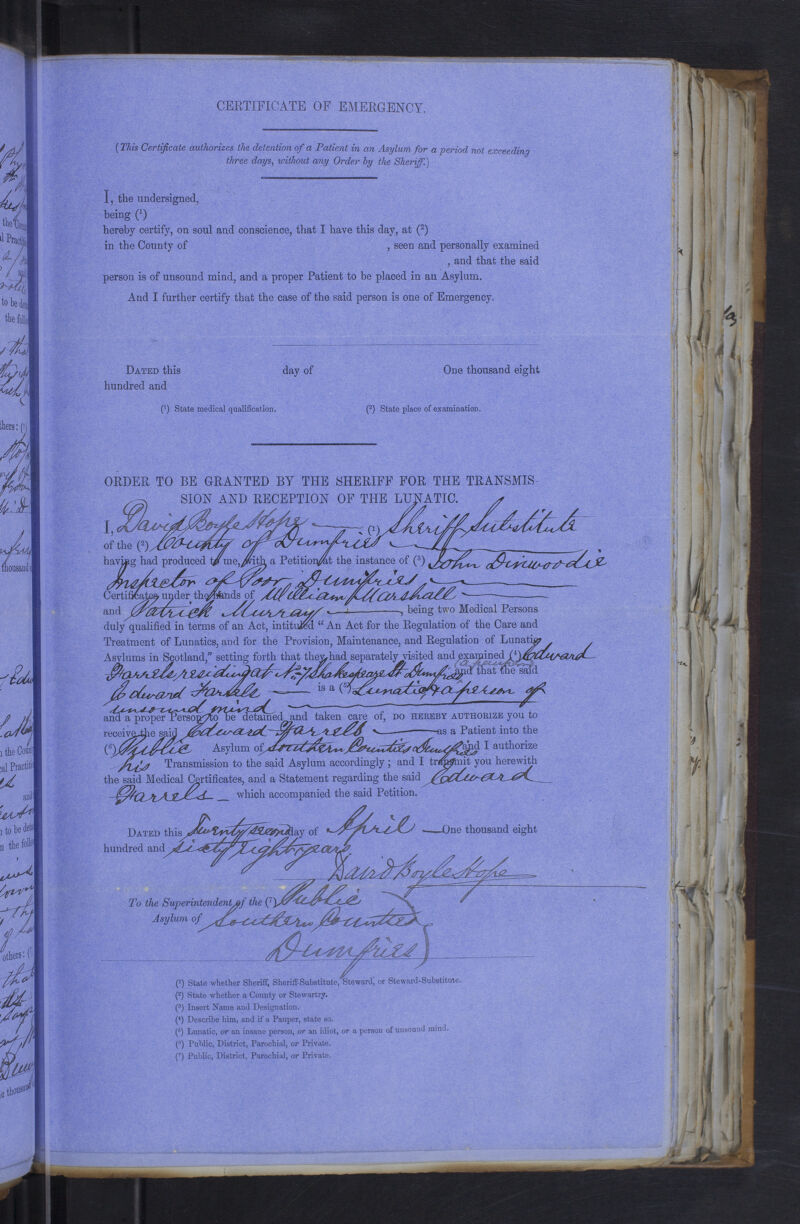 CERTIFICATE OF EMERGENCY.
(This Certificate authorizes the detention of a Patient in an Asylum for a period not exceeding
three days, without any Order by the Sheriff.)
I, the undersigned,
being (1)
hereby certify, on soul and conscience, that I have this day, at (2)
in the County of , seen and personally examined
, and that the said
person is of unsound mind, and a proper Patient to be placed in an Asylum.
And I further certify that the case of the said person is one of Emergency.
DATED this day of One thousand eight
hundred and
(1) State medical qualification. (2) State place of examination.
ORDER TO BE GRANTED BY THE SHERIFF FOR THE TRANSMIS-
SION AND RECEPTION OF THE LUNATIC.
I, David Boyle Hope (1) Sheriff Substitute
of the (2) County of Dumfries
having had produced to me, with a Petition at the instance of (3) John Dinwoodie
Inspector of Poor Dumfries
Certificates under the hands of William Marshall
and Patrick Murray , being two Medical Persons
duly qualified in terms of an Act, intituled "An Act for the Regulation of the Care and
Treatment of Lunatics, and for the Provision, Maintenance, and Regulation of Lunatic
Asylums in Scotland," setting forth that they had separately visited and examined (4) Edward
Farrels residing at No 7 Shakespeare St Dumfries (a pauper) and that the said
Edward Farrels is a (5) Lunatic or a person of
unsound mind
and a proper Person to be detained and taken care of, DO HEREBY AUTHORIZE you to
receive the said Edward Farrels as a Patient into the
(6) Public Asylum of Southern Counties Dumfries and I authorize
his Transmission to the said Asylum accordingly; and I transmit you herewith
the said Medical Certificates, and a Statement regarding the said Edward
Farrels which accompanied the said Petition.
DATED this Twenty second day of April One thousand eight
hundred and sixty eight years
David Boyle Hope
To the Superintendent of the (7) Public
Asylum of Southern Counties
Dumfries
(1) State whether Sheriff, Sheriff-Substitute, Steward, or Steward-Substitute.
(2) State whether a County or Stewartry.
(3) Insert Name and Designation.
(4) Describe him, and if a Pauper, state so.
(5) Lunatic, or an insane person, or an idiot, or a person of unsound mind.
(6) Public, District, Parochial, or Private.
(7) Public, District, Parochial, or Private.